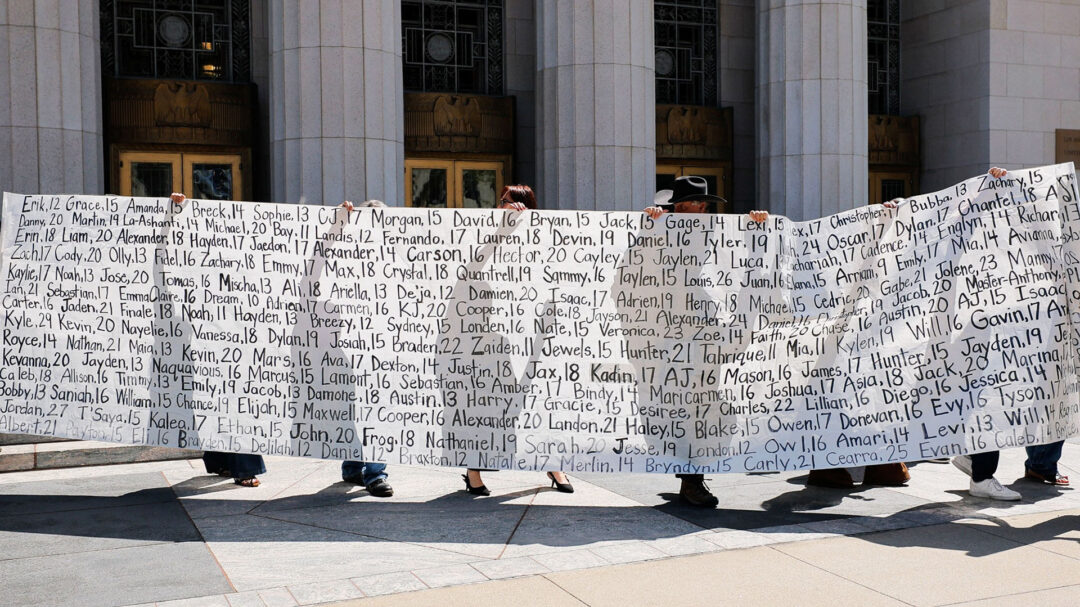 Erik, 12 Grace, 15 Amanda, 15 Breck, 14 Sophie, 13 CJ, 17 Morgan, 15 David, 16 Bryan, 15 Jack, 15 Gage, 14 Lexi, 15 Christopher, Bubba, 13 Zachary, 15
Danny, 20 Martin, 19 La-Ashanti, 14 Michael, 20 Bay, 11 Landis, 12 Fernando, 17 Lauren, 18 Devin, 19 Daniel, 16 Tyler, 19 24 Oscar, 17 Dylan, 17 Chantel, 18
Erin, 18 Liam, 20 Alexander, 18 Hayden, 17 Jaedon, 17 Alexander, 14 Carson, Hector, 20 Cayley, 15 Jaylen, 21 Luca, 17 Cadence, 14 Englyn, 14 Richar
Zach, 17 Cody, 20 Olly, 13 Fidel, 16 Zachary, 18 Emmy, 17 Max, 18 Crystal, 18 Quantrell, 19 Sammy, 16 Taylen, 15 Louis, 26 Juan, 15 Arriam, Emily, 17 Mia, 14
Kaylie, 17 Noah, 13 Jose, 20 Tomas, 16 Mischa, 13 Ali, 18 Ariella, 13 Deja, 12 Damien, 20 Isaac, 17 Adrien, 19 Henry, 18 Michael, 15 Cedric, Gabe, 21 Jolene, 23 Manny
Ian, 21 Sebastian, 17 EmmaClaire, 16 Dream, 10 Adrien, Carmen, 16 KJ, 20 Cooper, 16 Cole, 18 Jayson, 21 Alexander, 24 Daniel, 16 Chase, 16 Austin, Jacob, 20 Master-Anthony,
Carter, 16 Jaden, 21 Finale, 18 Noah, 11 Hayden, 13 Breezy, 12 Sydney, 15 Londen, 16 Nate, 15 Veronica, 23 Zoe, 14 Faith, 11 Will, 16 AJ, 15 Isaac
Kyle, 29 Kevin, 20 Nayelie, 16 Vanessa, 18 Dylan, 19 Josiah, 15 Braden, 22 Zaiden, 11 Jewels, 15 Hunter, 21 Tabrique, 11 Mia, 11 Kylen, 19 Gavin, 17
Royce, 14 Nathan, 21 Maia, 13 Kevin, 20 Mars, 16 Ava, 17 Dexton, 14 Justin, 18 Jax, 18 Kadin, 17 AJ, 16 Mason, 16 James, Hunter, 15 Jayden, 19
Kevanna, 20 Jayden, 13 Naquavious, 16 Marcus, 15 Lamont, 16 Sebastian, 16 Amber, 17 Bindy, 14 Maricarmen, 16 Joshua, 17 Asia, 18 Jack, 20 Marina,
Caleb, 18 Allison, 16 Timmy, 13 Emily, 19 Jacob, 13 Damone, 18 Austin, 13 Harry, 17 Gracie, 15 Desiree, 17 Charles, 22 Lillian, 16 Diego, 16 Jessica, 14
Bobby, 13 Saniah, 16 William, 15 Chance, 14 Elijah, 15 Maxwell, 17 Cooper, 16 Alexander, 20 Landon, 21 Haley, 15 Blake, 15 Owen, 17 Donevan, 16 Evy, 16 Tyson, 17
Jordan, 27 T'Saya, 15 Kalea, 17 Ethan, 15 John, 20 Frog, 18 Nathaniel, 19 Sarah, 20 Jesse, 19 London, 12 Owl, 16 Amari, 14 Levi, 13 Will, 14
Albert, 21 Payton, 15 Eli, 16 Brayden, 15 Delilah, 12 Daniel, 12 Braxton, 12 Natalie, 17 Merlin, 14 Bryndyn, 14 Carly, 21 Cearra, 25 Evan, 16 Caleb, 12